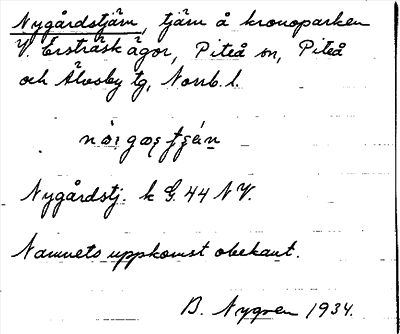 Nygårdstjärn, tjärn å kronoparken
V. Ersträsk ägor, Piteå sn, Piteå
och Älvsby tg, Norrb. l.
Nygårdstj. k G. 44 NV.
Namnets uppkomst obekant.
B. Nygren 1934.